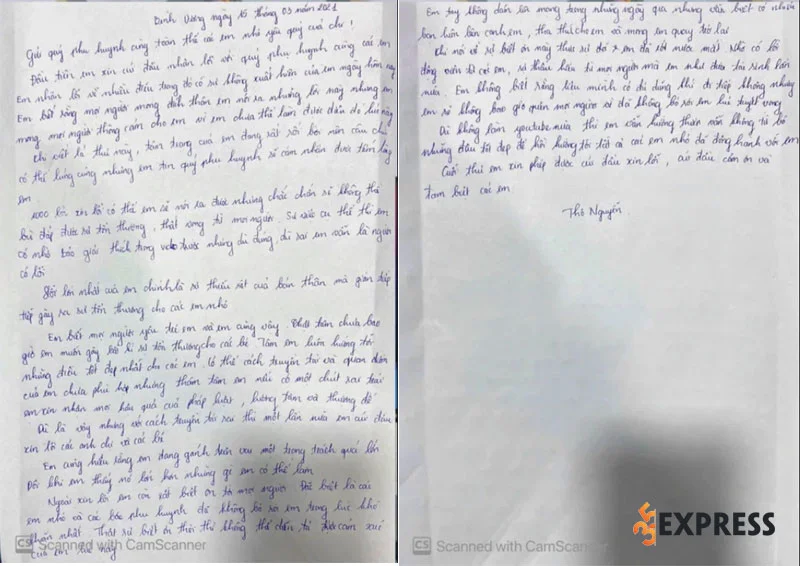 Bình Dương ngày 15 tháng 03 năm 2021
Gửi quý phụ huynh cùng toàn thể các em nhỏ yêu quý của chị!
Đầu tiên em xin cúi đầu nhận lỗi với quý phụ huynh cùng các em
Em nhận lỗi về nhiều điều trong đó có sự không xuất hiện của em ngày hôm nay
Em biết rằng mọi người mong đích thân em nói ra những lời này nhưng em
mong mọi người thông cảm cho em vì em chưa thể làm được điều đó lúc này
Chỉ viết lá thư này, tâm trạng của em đang rất rối bời nên câu chữ
có thể lủng củng nhưng em tin quý phụ huynh sẽ cảm nhận được tấm lòng
em
1000 lời xin lỗi có thể em sẽ nói ra được nhưng chắc chắn sẽ không thể
bù đắp được sự tổn thương, thất vọng từ mọi người. Sự việc cụ thể thì em
có nhờ báo giải thích trong video trước nhưng dù đúng, dù sai em vẫn là người
có lỗi
Lỗi lớn nhất của em chính là sự thiếu sót của bản thân mà gián tiếp
tiếp gây ra sự tổn thương cho các em nhỏ
Em biết mọi người yêu trẻ em và em cũng vậy. Thật tâm chưa bao
giờ em muốn gây bất kì sự tổn thương cho các bé. Tâm em luôn hướng tới
những điều tốt đẹp nhất cho các em. Có thể cách truyền tải và quan điểm
của em chưa phù hợp nhưng thâm tâm em nếu có một chút sai trái
em xin nhận mọi hậu quả của pháp luật, lương tâm và thượng đế
Dù là vậy nhưng với cách truyền tải sai thì một lần nữa em cúi đầu
xin lỗi các anh chị và các bé
Em cũng hiểu rằng em đang gánh trên vai một trọng trách quá lớn
Đôi khi em thấy nó lớn hơn những gì em có thể làm
Ngoài xin lỗi em còn rất biết ơn tới mọi người. Đặc biệt là các
em nhỏ và các bậc phụ huynh đã không bỏ rơi em trong lúc khó
khăn nhất. Thật sự biết ơn thôi thì không thể diễn tả được cảm xúc
của em lúc này
CS Scanned with CamScanner
Em tuy không dám lên mạng trong những ngày qua nhưng vẫn biết có nhiều
bạn luôn bên cạnh em, tha thứ cho em và mong em quay trở lại
Khi nói về sự biết ơn này thực sự đã em đã rơi nước mắt. Nhờ có lời
động viên từ các em, sự thấu hiểu từ mọi người mà em như được tái sinh lần
nữa. Em không biết rằng liệu mình có đủ dũng khí đi tiếp không nhưng
em sẽ không bao giờ quên mọi người vì đã không bỏ rơi em lúc tuyệt vọng
Dù không làm youtube nữa thì em vẫn hướng thiện vẫn không từ bỏ
những điều tốt đẹp để hồi hướng tới tất cả các em nhỏ đã đồng hành với em
Cuối thư em xin phép được cúi đầu xin lỗi, cúi đầu cảm ơn và
tạm biệt các em
Thơ Nguyễn
CS Scanned with CamScanner
35 EXPRESS